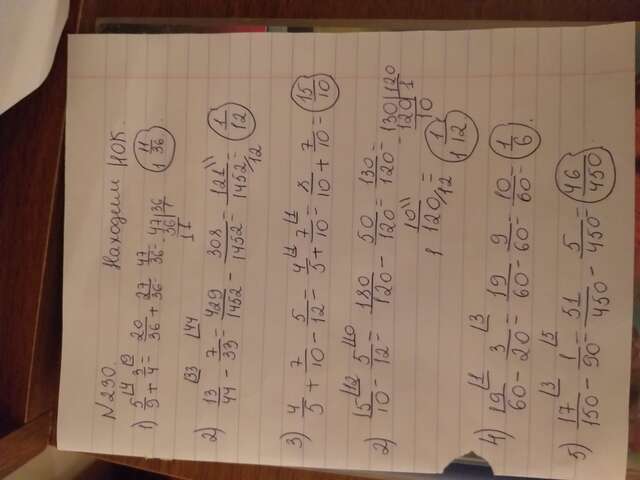 №230. Находим НОК.
1) 5/9 + 3/4 = 20/36 + 27/36 = 47/36 = 1 11/36
2) 13/44 - 7/33 = 429/1452 - 308/1452 = 121/1452 = 1/12
3) 4/5 + 7/10 - 5/12 = 4/5 + 7/10 = 8/10 + 7/10 = 15/10
2) 15/10 - 5/12 = 180/120 - 50/120 = 130/120 =
1 10/120 = 1 1/12
4) 19/60 - 3/20 = 19/60 - 9/60 = 10/60 = 1/6.
5) 17/150 - 1/90 = 51/450 - 5/450 = 46/450